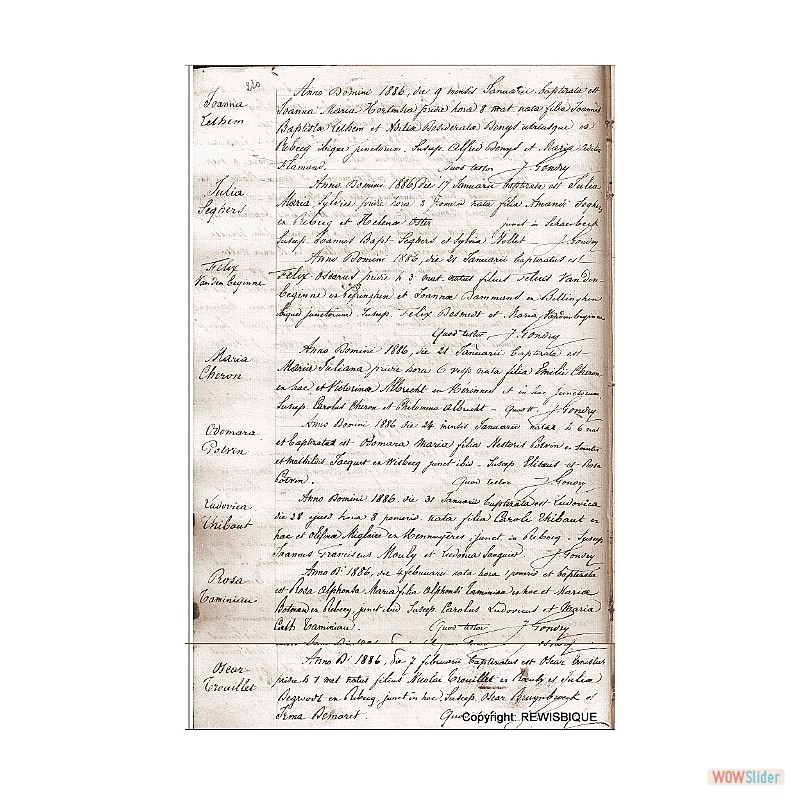 220
Joanna
Lethem
Anno Domini 1886, die 9 mensis Januarii baptizata est
Joanna Maria Hortensia pridie hora 8 mat. nata filia Joannis
Baptista Lethem et Adilia Desiderata Denys utriusque ex
Rebecq ibique junctorum. Suscep. Alfred Denys et Maria
Flamand. Quod testor J. Gondry
Julia
Seghers
Anno Domini 1886, die 17 Januarii baptizata est Julia
Maria Sylvie pridie hora 3 pomerid nata filia Amandi Seghers
ex Rebecq et Helena Oster junct in Schaerbeek
Suscep. Joannes Bapt. Seghers et Sylvia Nollet J. Gondry
Felix
Vanden Eeginne
Anno Domini 1886, die 21 Januarii baptizatus est
Felix Oscarus pridie h 3 mat. natus filius Vanden-
Eeginne ex Pepinghen et Joanna Dammand ex Bellinghen
ibique junctorum. Suscep. Felix Desmedt et Maria Vanden Eeginne
Quod testor J. Gondry
Maria
Cheron
Anno Domini 1886, die 21 Januarii baptizata est
Maria Juliana pridie hora 6 vesp nata filia Emilii Cheron
ex hac et Victorina Albrecht ex et in hac junctorum
Suscep. Carolus Cheron et Philomena Albrecht - Quod t J. Gondry
Odomara
Potvin
Anno Domini 1886 die 24 mensis Januarii nata h 6 mat
et baptizata est Odomara Maria filia Nestoris Potvin ex
et Mathildis Jacquet ex Wisbecq junct ibid. Suscep. et Rosa
Potvin. Quod testor J. Gondry
Ludovica
Thibaut
Anno Domini 1886 die 31 Januarii baptizata est Ludovica
die 28 ejusd hora 8 pomerid. nata filia Caroli Thibaut ex
hac et ex Hennuyeres, junct. in Rebecq. Suscep
Joannes Franciscus Mouly et Ludovia Jacquet. J. Gondry
Rosa
Taminiau
Anno Di 1886, die 4 februarii nata hora 1 pomerid et baptizata
est Rosa Alphonsa Maria filia Alphonsi Taminiau ex hac et Maria
ex Rebecq, junct. ibid Suscep. Carolus Ludovicus et Maria
Cath. Taminiau. Quod testor J. Gondry
Oscar
Trouillet
Anno Di 1886, die 7 februarii baptizatus est Oscar Ernestus
pridie h 7 mat natus filius Nicolai Trouillet ex Roeulx et Julia
ex Rebecq, junct in hac. Suscep. Oscar Bruynbroeck et
Irma Demaret. Quod
Copyright: REWISBIQUE
WOWSlider